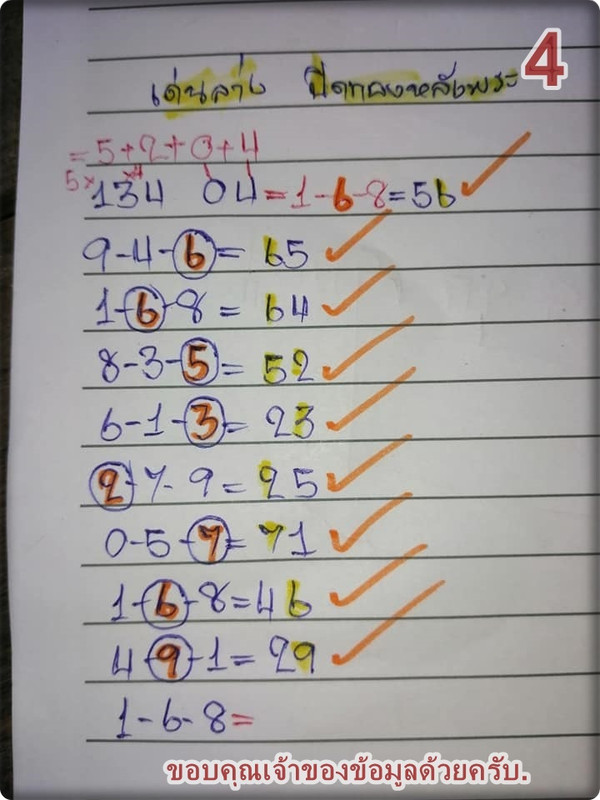 4
เด่นล่าง ปิดทองหลังพระ
=5+2+0+4
5× ×4
134 04=1-6-8=56
9-4-6=65
1-6-8=64
8-3-5=52
6-1-3=23
2-7-9=25
0-5-7=71
1-6-8=46
4-9-1=29
1-6-8=
ขอบคุณเจ้าของข้อมูลด้วยครับ.